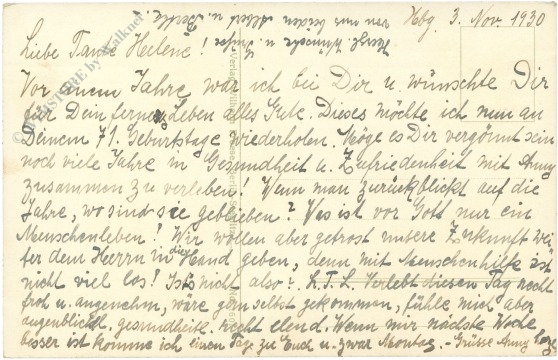 Hbg. 3. Nov. 1930
Herzl. Wünsche u. Grüße
von uns beiden Albert u.
Liebe Tante Helene!
Vor einem Jahre war ich bei Dir u. wünschte Dir
für Dein fernes Leben alles Gute. Dieses möchte ich nun an
Deinem 71. Geburtstage wiederholen. Möge es Dir vergönnt sein
noch viele Jahre in Gesundheit u. Zufriedenheit mit Anny
zusammen zu verleben! Wenn man zurückblickt auf die
Jahre, wo sind sie geblieben? Was ist vor Gott nur ein
Menschenleben! Wir wollen aber getrost unsere Zukunft wei
ter dem Herrn in die Hand geben, denn mit Menschenhilfe ist
nicht viel los! Ist's nicht also? L.T.L. Verlebt diesen Tag recht
froh u. angenehm, wäre gern selbst gekommen, fühle mich aber
augenblickl. gesundheitl. recht elend. Wenn mir nächste Woche
besser ist komme ich einen Tag zu Euch u. zwar Montag. - Grüsse Anny
© WEBSTORE by Walkner